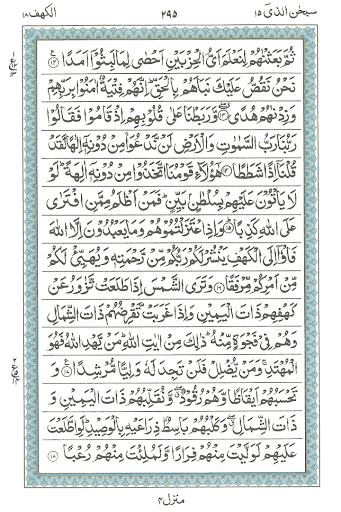 سبحٰن الذی ۱۵
۲۹۵
الکھف ۱۸
ثُمَّ بَعَثْنٰهُمْ لِنَعْلَمَ اَیُّ الْحِزْبَیْنِ اَحْصٰی لِمَا لَبِثُوْۤا اَمَدًا ﴿۱۲﴾
نَحْنُ نَقُصُّ عَلَیْكَ نَبَاَهُمْ بِالْحَقِّ ؕ اِنَّهُمْ فِتْیَةٌ اٰمَنُوْا بِرَبِّهِمْ
وَزِدْنٰهُمْ هُدًی ﴿۱۳﴾ وَّرَبَطْنَا عَلٰی قُلُوْبِهِمْ اِذْ قَامُوْا فَقَالُوْا
رَبُّنَا رَبُّ السَّمٰوٰتِ وَالْاَرْضِ لَنْ نَّدْعُوَا۟ مِنْ دُوْنِهٖۤ اِلٰهًا لَّقَدْ
قُلْنَاۤ اِذًا شَطَطًا ﴿۱۴﴾ هٰۤؤُلَآءِ قَوْمُنَا اتَّخَذُوْا مِنْ دُوْنِهٖۤ اٰلِهَةً ؕ لَوْ
لَا یَاْتُوْنَ عَلَیْهِمْ بِسُلْطٰنٍۭ بَیِّنٍ ؕ فَمَنْ اَظْلَمُ مِمَّنِ افْتَرٰی
عَلَی اللّٰهِ كَذِبًا ﴿۱۵﴾ وَاِذِ اعْتَزَلْتُمُوْهُمْ وَمَا یَعْبُدُوْنَ اِلَّا اللّٰهَ
فَاْوٗۤا اِلَی الْكَهْفِ یَنْشُرْ لَكُمْ رَبُّكُمْ مِّنْ رَّحْمَتِهٖ وَیُهَیِّئْ لَكُمْ
مِّنْ اَمْرِكُمْ مِّرْفَقًا ﴿۱۶﴾ وَتَرَی الشَّمْسَ اِذَا طَلَعَتْ تَّزٰوَرُ عَنْ
كَهْفِهِمْ ذَاتَ الْیَمِیْنِ وَاِذَا غَرَبَتْ تَّقْرِضُهُمْ ذَاتَ الشِّمَالِ
وَهُمْ فِیْ فَجْوَةٍ مِّنْهُ ؕ ذٰلِكَ مِنْ اٰیٰتِ اللّٰهِ ؕ مَنْ یَّهْدِ اللّٰهُ فَهُوَ
الْمُهْتَدِ ۚ وَمَنْ یُّضْلِلْ فَلَنْ تَجِدَ لَهٗ وَلِیًّا مُّرْشِدًا ﴿۱۷﴾ وَ
تَحْسَبُهُمْ اَیْقَاظًا وَّهُمْ رُقُوْدٌ ۖۗ وَّنُقَلِّبُهُمْ ذَاتَ الْیَمِیْنِ وَ
ذَاتَ الشِّمَالِ ۖۗ وَكَلْبُهُمْ بَاسِطٌ ذِرَاعَیْهِ بِالْوَصِیْدِ ؕ لَوِ اطَّلَعْتَ
عَلَیْهِمْ لَوَلَّیْتَ مِنْهُمْ فِرَارًا وَّلَمُلِئْتَ مِنْهُمْ رُعْبًا ﴿۱۸﴾
منزل ۴